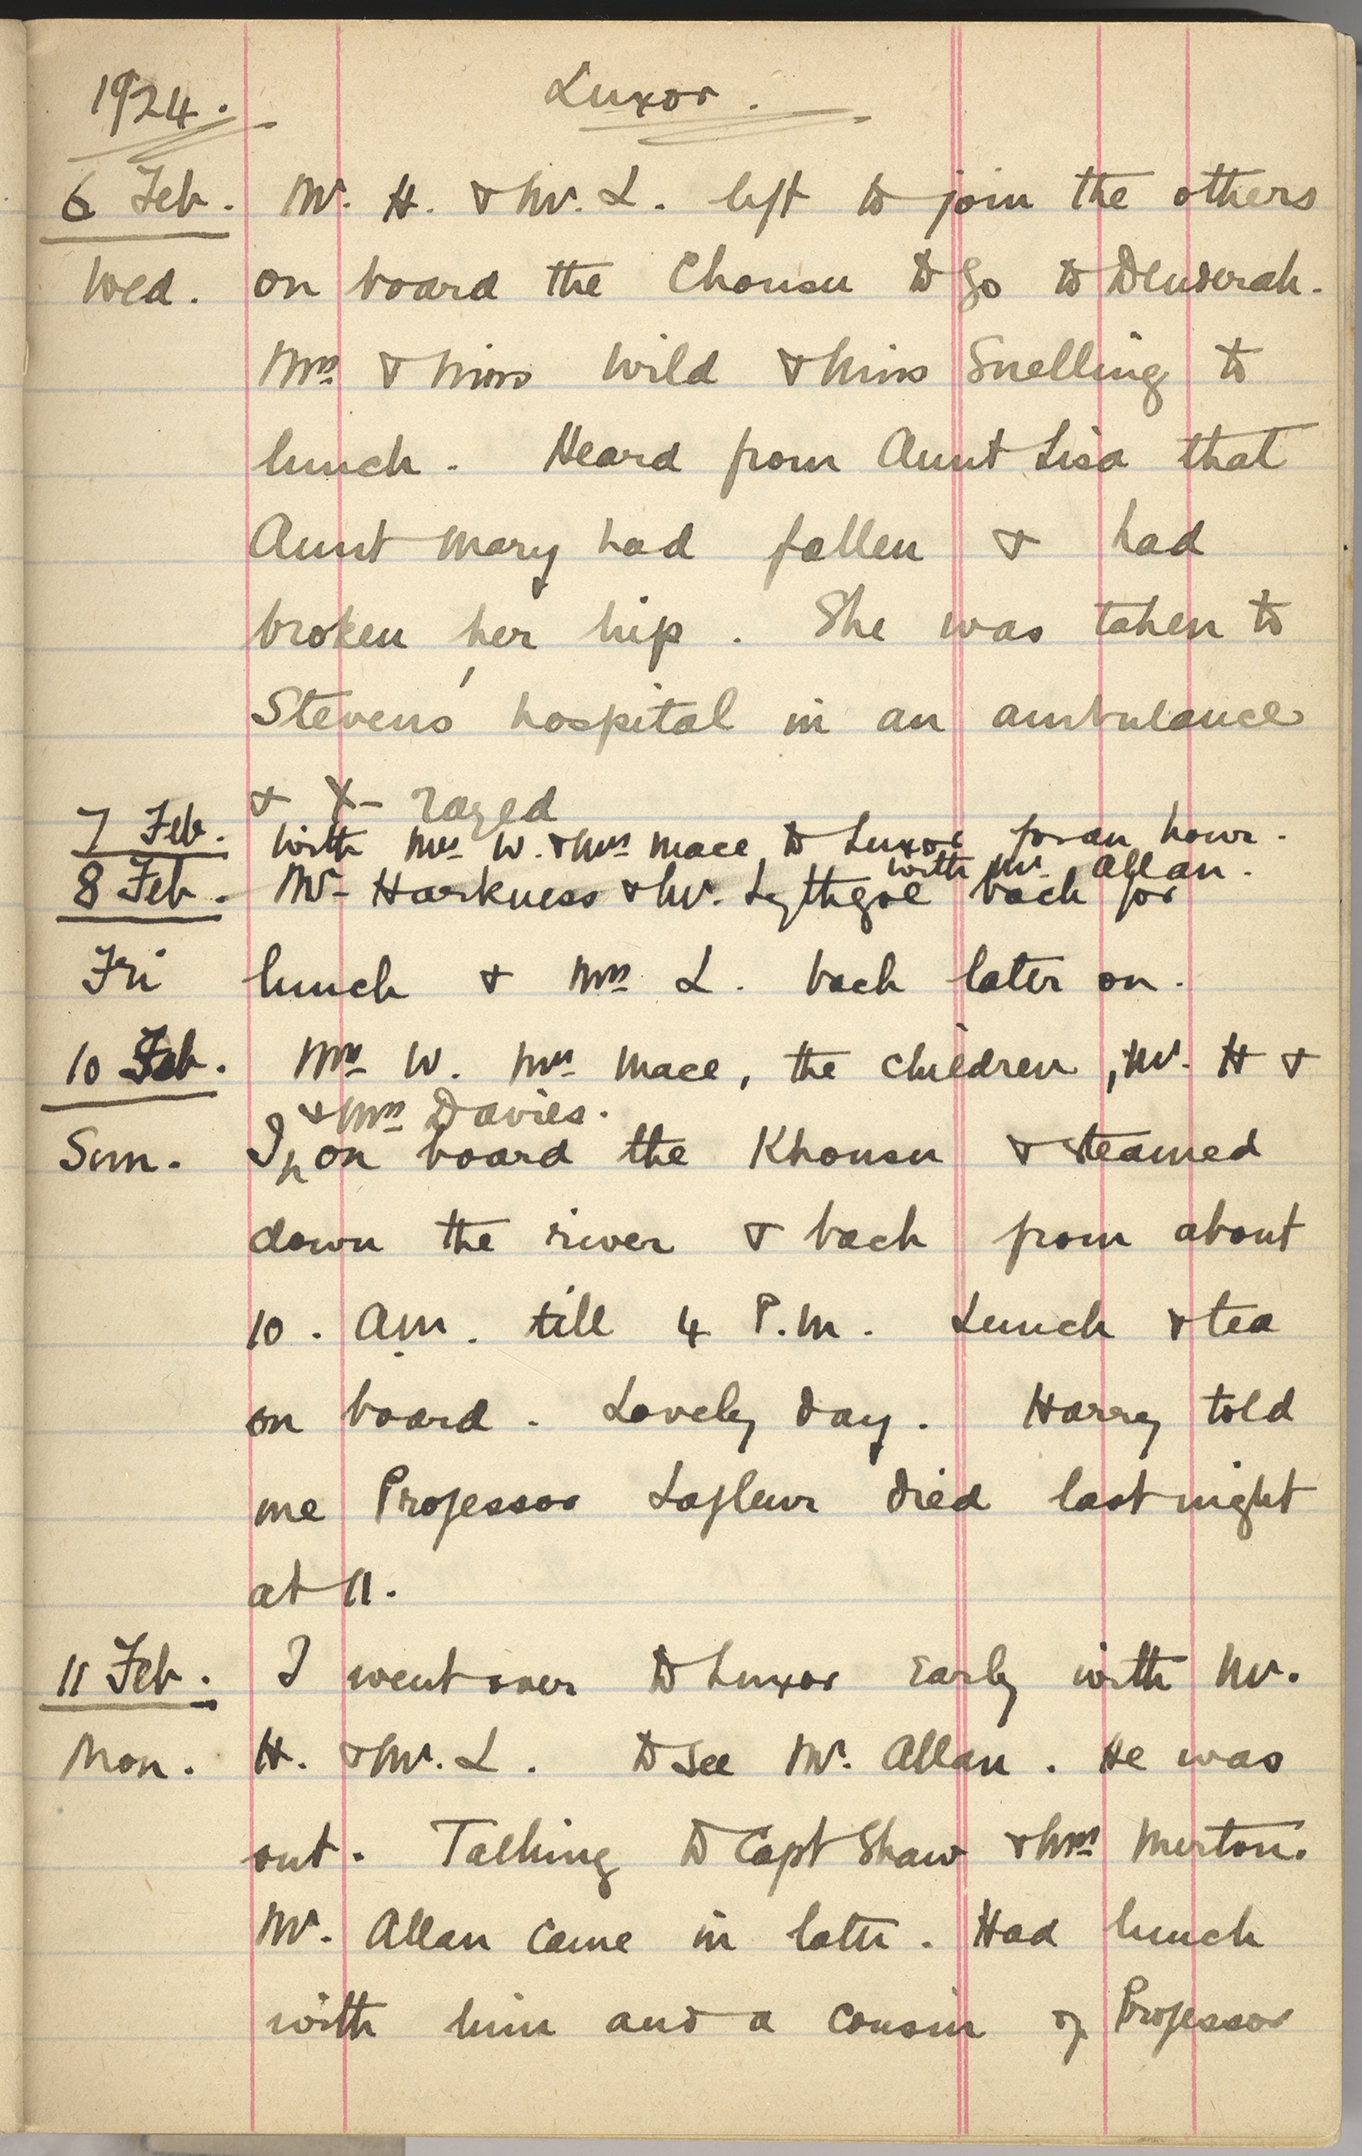 1924. Luxor.
6 Feb. Mr. H. & Mr. L. left to join the others
Wed. on board the Chonsu to go to Denderah.
Mrs & Miss Wild & Miss Snelling to
lunch. Heard from Aunt Lisa that
Aunt Mary had fallen & had
broken her hip. She was taken to
Stevens' hospital in an ambulance
& X-rayed
7 Feb. With Mrs W. & Mrs Mace to Luxor for an hour.
with Mr. Allan.
8 Feb. Mr Harkness & Mr. Lythgoe back for
Fri lunch & Mrs L. back later on.
10 Feb. Mrs W. Mrs Mace, the children, Mr. H &
& Mrs Davies.
Sun. I on board the Khonsu & steamed
down the river & back from about
10. am. till 4 P.M. Lunch & tea
on board. Lovely day. Harry told
me Professor Lafleur died last night
at 11.
11 Feb. I went over to Luxor early with Mr.
Mon. H. & Mr. L. to see Mr. Allan. He was
out. Talking to Capt Shaw & Mrs Merton.
Mr. Allan came in later. Had lunch
with him and a cousin of Professor